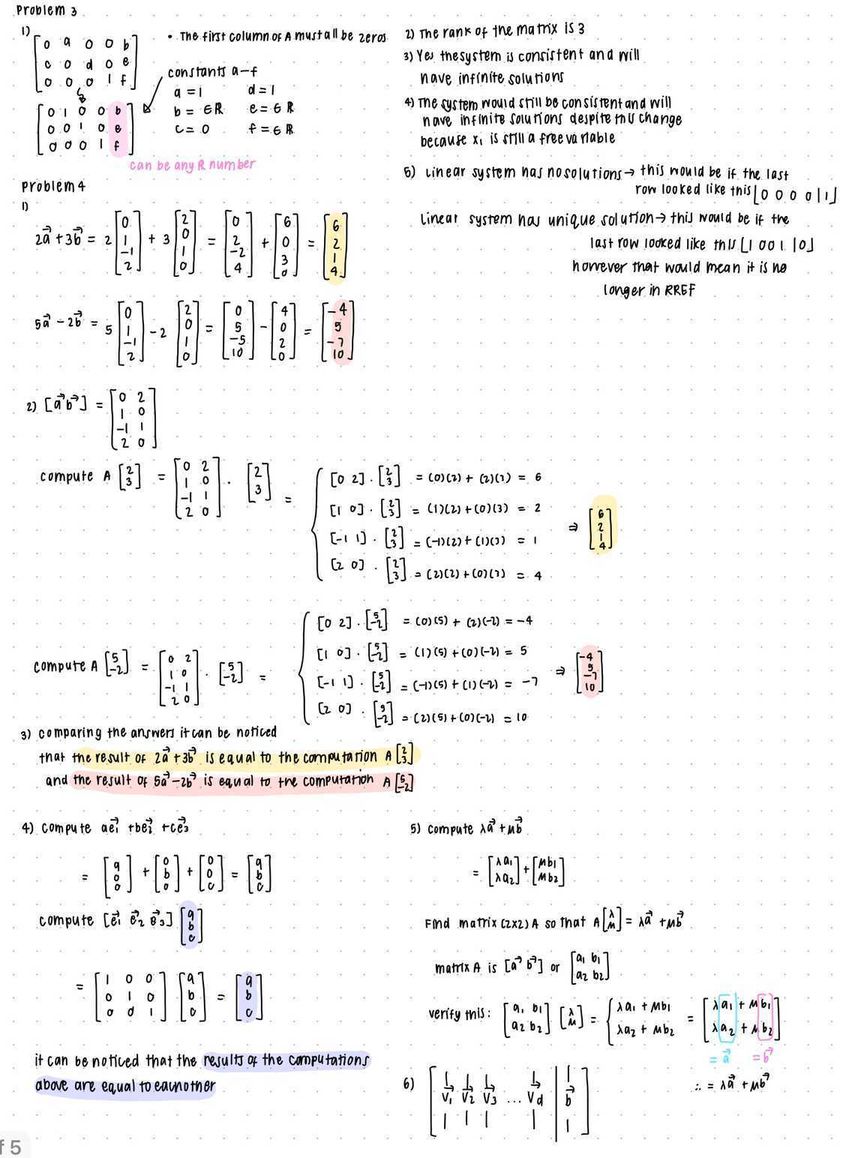 Problem 3
1)
[0 a 0 0 b]
[0 c d 0 e]
[0 0 0 1 f]
• The first column of A must all be zeros
constants a-f
a = 1 d = 1
b = ∈ℝ e = ∈ℝ
c = 0 f = ∈ℝ
[0 1 0 0 b]
[0 0 1 0 e]
[0 0 0 1 f]
can be any ℝ number
2) The rank of the matrix is 3
3) Yes the system is consistent and will
have infinite solutions
4) The system would still be consistent and will
have infinite solutions despite this change
because x₁ is still a free variable
5) Linear system has no solutions → this would be if the last
row looked like this [0 0 0 0 | 1]
Linear system has unique solution → this would be if the
last row looked like this [1 0 0 1 | 0]
however that would mean it is no
longer in RREF
Problem 4
1)
2a⃗ + 3b⃗ = 2 [0 1 -1 2] + 3 [2 0 1 0] = [0 2 -2 4] + [6 0 3 0] = [6 2 1 4]
5a⃗ - 2b⃗ = 5 [0 1 -1 2] - 2 [2 0 1 0] = [0 5 -5 10] - [4 0 2 0] = [-4 5 -7 10]
2) [a⃗ b⃗] =
[0 2]
[1 0]
[-1 1]
[2 0]
compute A [2 3] = [0 2 1 0 -1 1 2 0] · [2 3] =
[0 2] · [2 3] = (0)(2) + (2)(3) = 6
[1 0] · [2 3] = (1)(2) + (0)(3) = 2
[-1 1] · [2 3] = (-1)(2) + (1)(3) = 1
[2 0] · [2 3] = (2)(2) + (0)(3) = 4
⇒ [6 2 1 4]
compute A [5 -2] = [0 2 1 0 -1 1 2 0] · [5 -2] =
[0 2] · [5 -2] = (0)(5) + (2)(-2) = -4
[1 0] · [5 -2] = (1)(5) + (0)(-2) = 5
[-1 1] · [5 -2] = (-1)(5) + (1)(-2) = -7
[2 0] · [5 -2] = (2)(5) + (0)(-2) = 10
⇒ [-4 5 -7 10]
3) comparing the answers it can be noticed
that the result of 2a⃗ + 3b⃗ is equal to the computation A [2 3]
and the result of 5a⃗ - 2b⃗ is equal to the computation A [5 -2]
4) compute ae⃗₁ + be⃗₂ + ce⃗₃
= [a 0 0] + [0 b 0] + [0 0 c] = [a b c]
compute [e⃗₁ e⃗₂ e⃗₃] [a b c]
= [1 0 0 0 1 0 0 0 1] [a b c] = [a b c]
it can be noticed that the results of the computations
above are equal to eachother
5) compute λa⃗ + μb⃗
= [λa₁ λa₂] + [μb₁ μb₂]
Find matrix (2x2) A so that A [λ μ] = λa⃗ + μb⃗
matrix A is [a⃗ b⃗] or [a₁ b₁ a₂ b₂]
verify this: [a₁ b₁ a₂ b₂] [λ μ] = { λa₁ + μb₁ λa₂ + μb₂ = [λa₁ + μb₁ λa₂ + μb₂]
= a⃗ = b⃗
∴ = λa⃗ + μb⃗
6) [v⃗₁ v⃗₂ v⃗₃ ... v⃗d | b⃗]
f 5